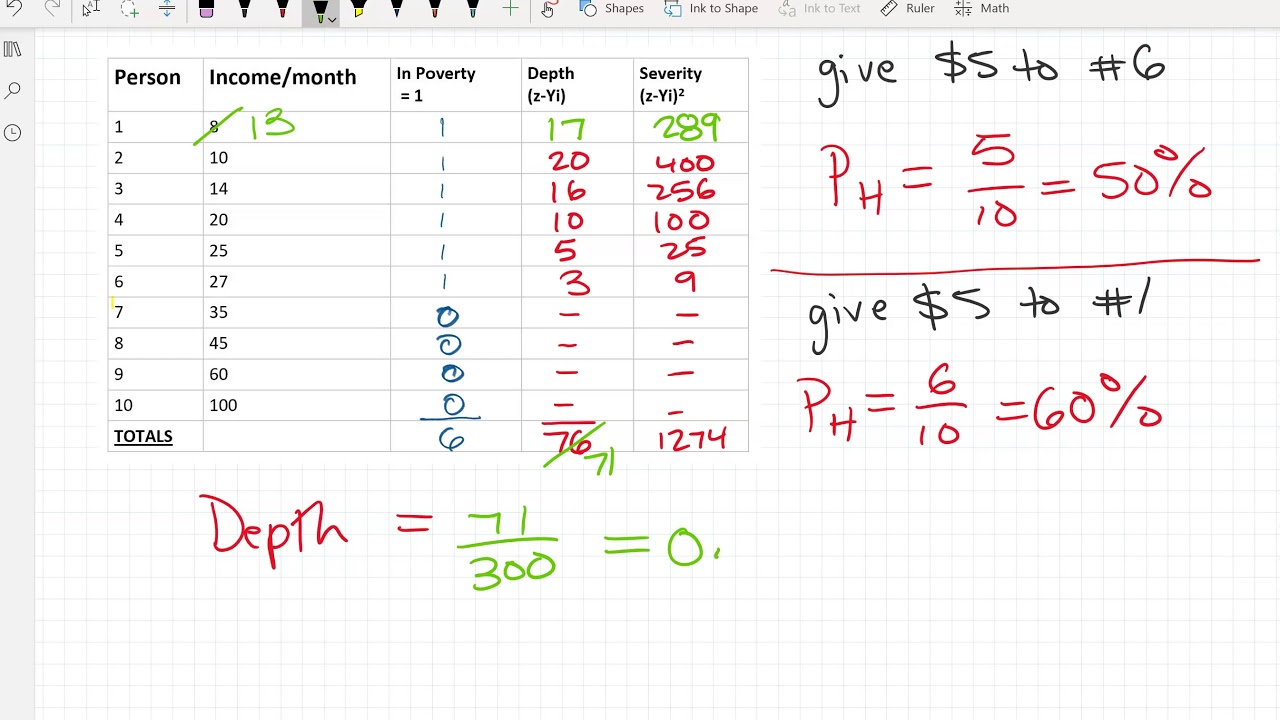 Shapes Ink to Shape Ink to Text Ruler Math
Person Income/month In Poverty = 1 Depth (z-Yi) Severity (z-Yi)²
1 8 13 1 17 289
2 10 1 20 400
3 14 1 16 256
4 20 1 10 100
5 25 1 5 25
6 27 1 3 9
7 35 0 - -
8 45 0 - -
9 60 0 - -
10 100 0 - -
TOTALS 6 76 71 1274
Depth = 71/300 = 0.
give $5 to #6
PH = 5/10 = 50%
give $5 to #1
PH = 6/10 = 60%